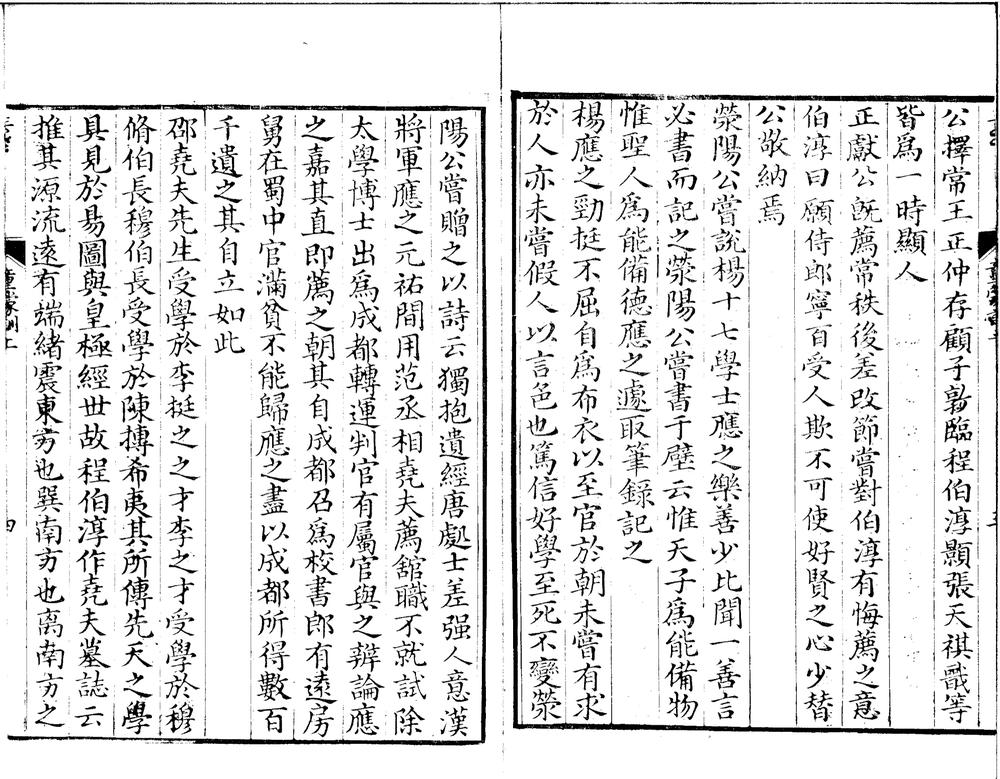 公擇常王正仲存顧子敦臨程伯淳顥張天祺戩等
皆爲一時顯人
正獻公旣薦常秩後差改節嘗對伯淳有悔薦之意
伯淳曰願侍郎寧百受人欺不可使好賢之心少替
公敬納焉
滎陽公嘗說楊十七學士應之樂善少比聞一善言
必書而記之滎陽公嘗書于壁云惟天子爲能備物
惟聖人爲能備德應之遽取筆錄記之
楊應之勁挺不屈自爲布衣以至官於朝未嘗有求
於人亦未嘗假人以言色也篤信好學至死不變滎
陽公嘗贈之以詩云獨抱遺經唐處士差强人意漢
將軍應之元祐間用范丞相堯夫薦舘職不就試除
太學博士出爲成都轉運判官有屬官與之辨論應
之嘉其直即薦之朝其自成都召爲校書郎有遠房
舅在蜀中官滿貧不能歸應之盡以成都所得數百
千遺之其自立如此
邵堯夫先生受學於李挺之之才李之才受學於穆
脩伯長穆伯長受學於陳摶希夷其所傳先天之學
具見於易圖與皇極經世故程伯淳作堯夫墓誌云
推其源流遠有端緒震東方也巽南方也离南方之
童蒙訓上
四